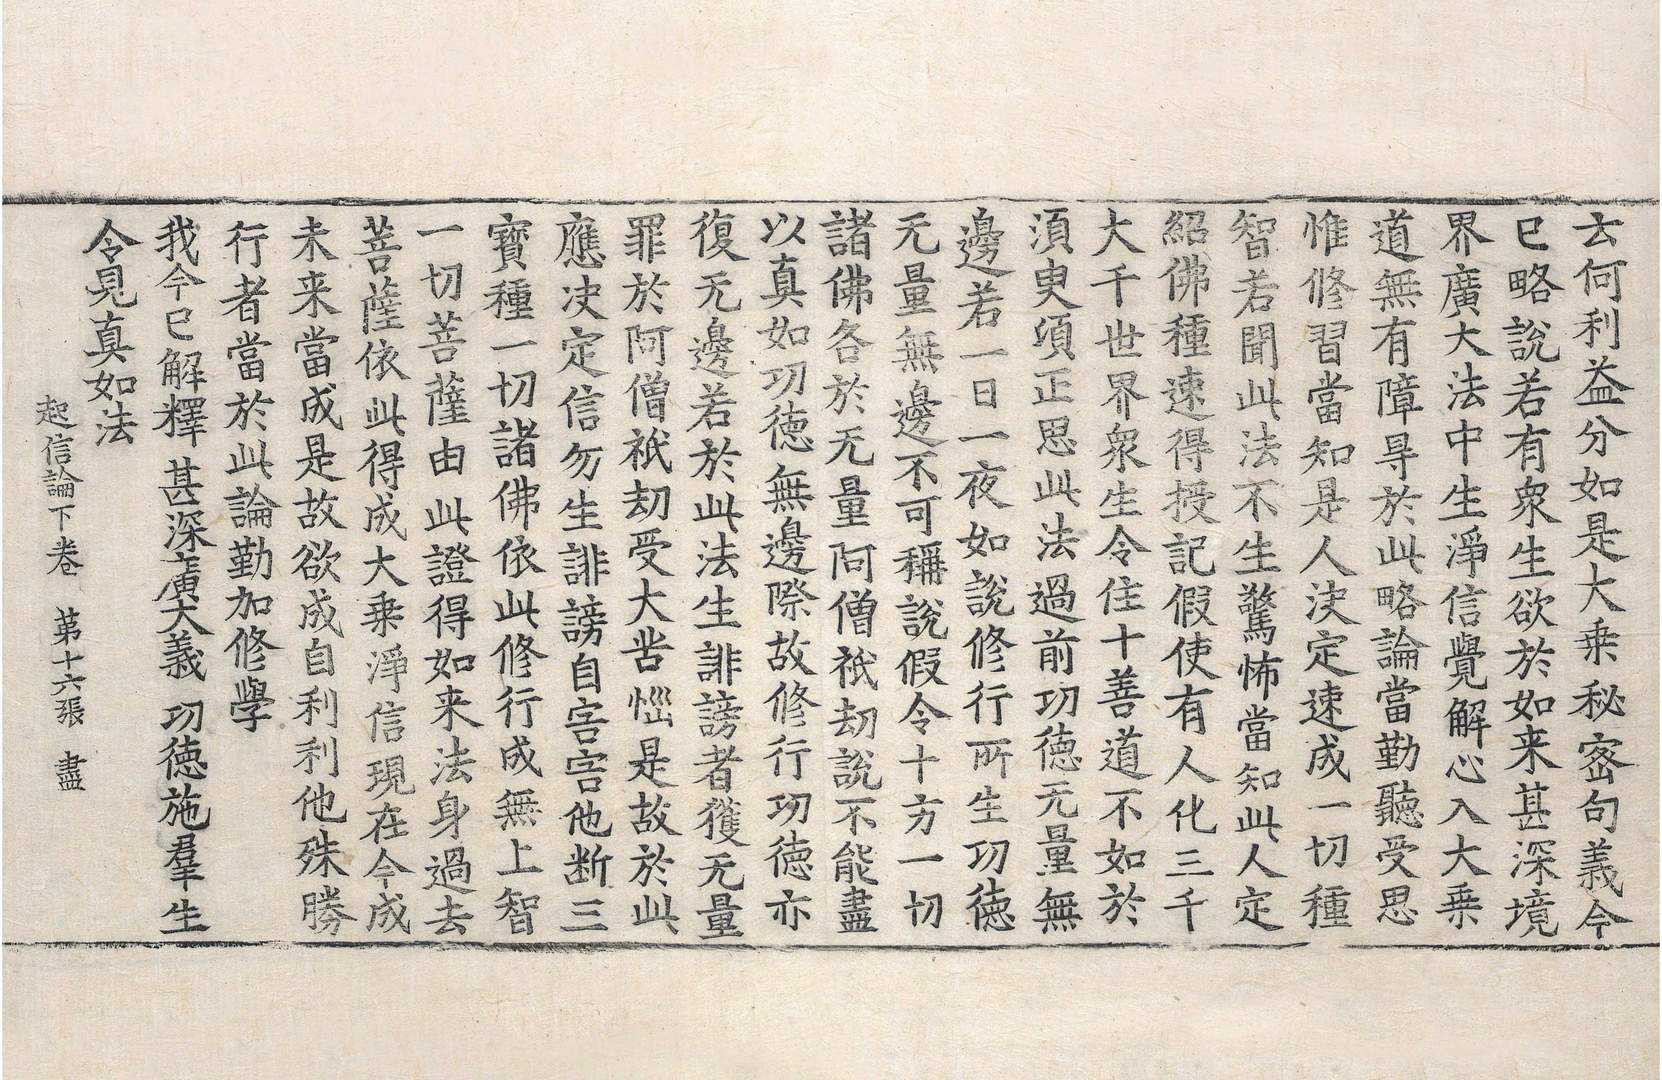 云何利益分如是大乗秘密句義今
已略說若有衆生欲於如来甚深境
界廣大法中生淨信覺解心入大乗
道無有障㝵於此略論當勤聽受思
惟修習當知是人决定速成一切種
智若聞此法不生驚怖當知此人定
紹佛種速得授記假使有人化三千
大千世界衆生令住十善道不如於
湏臾頃正思此法過前功徳无量無
邊若一日一夜如說修行所生功徳
无量無邊不可稱說假令十方一切
諸佛各於无量阿僧祇刧說不能盡
以真如功徳無邊際故修行功徳亦
復无邊若於此法生誹謗者獲无量
罪於阿僧祇刧受大苦惱是故於此
應决定信勿生誹謗自害害他断三
寳種一切諸佛依此修行成無上智
一切菩薩由此證得如来法身過去
菩薩依此得成大乗淨信現在今成
未来當成是故欲成自利利他殊勝
行者當於此論勤加修學
我今已解釋甚深廣大義功徳施羣生
令見真如法
起信論下卷 第十六張 盡